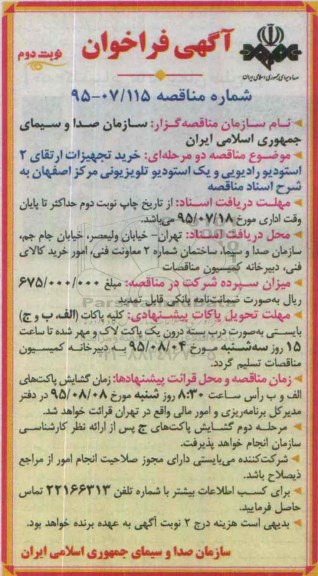 آگهی فراخوان
نوبت دوم
صدا و سیمای جمهوری اسلامی ایران
شماره مناقصه ۹۵-۰۷/۱۱۵
نام سازمان مناقصه گزار: سازمان صدا و سیمای
جمهوری اسلامی ایران
موضوع مناقصه دو مرحله‌ای: خرید تجهیزات ارتقای ۲
استودیو رادیویی و یک استودیو تلویزیونی مرکز اصفهان به
شرح اسناد مناقصه
مهلت دریافت اسناد: از تاریخ چاپ نوبت دوم حداکثر تا پایان
وقت اداری مورخ ۹۵/۰۷/۱۸ می‌باشد.
محل دریافت اسناد: تهران– خیابان ولیعصر، خیابان جام جم،
سازمان صدا و سیما، ساختمان شماره ۲ معاونت فنی، امور خرید کالای
فنی، دبیرخانه کمیسیون مناقصات
میزان سپرده شرکت در مناقصه: مبلغ ۶۷۵/۰۰۰/۰۰۰
ریال به‌صورت ضمانت‌نامه بانکی قابل تمدید
مهلت تحویل پاکات پیشنهادی: کلیه پاکات (الف، ب و ج)
بایستی به‌صورت درب بسته درون یک پاکت لاک و مهر شده تا ساعت
۱۵ روز سه‌شنبه مورخ ۹۵/۰۸/۰۴ به دبیرخانه کمیسیون
مناقصات تسلیم گردد.
زمان مناقصه و محل قرائت پیشنهادها: زمان گشایش پاکت‌های
الف و ب رأس ساعت ۸:۳۰ روز شنبه مورخ ۹۵/۰۸/۰۸ در دفتر
مدیرکل برنامه‌ریزی و امور مالی واقع در تهران قرائت خواهد شد.
مرحله دوم گشایش پاکت‌های ج پس از ارائه نظر کارشناسی
سازمان انجام خواهد پذیرفت.
شرکت‌کننده می‌بایستی دارای مجوز صلاحیت انجام امور از مراجع
ذیصلاح باشد.
برای کسب اطلاعات بیشتر با شماره تلفن ۲۲۱۶۶۳۱۳ تماس
حاصل فرمایید.
بدیهی است هزینه درج ۲ نوبت آگهی به عهده برنده خواهد بود.
سازمان صدا و سیمای جمهوری اسلامی ایران